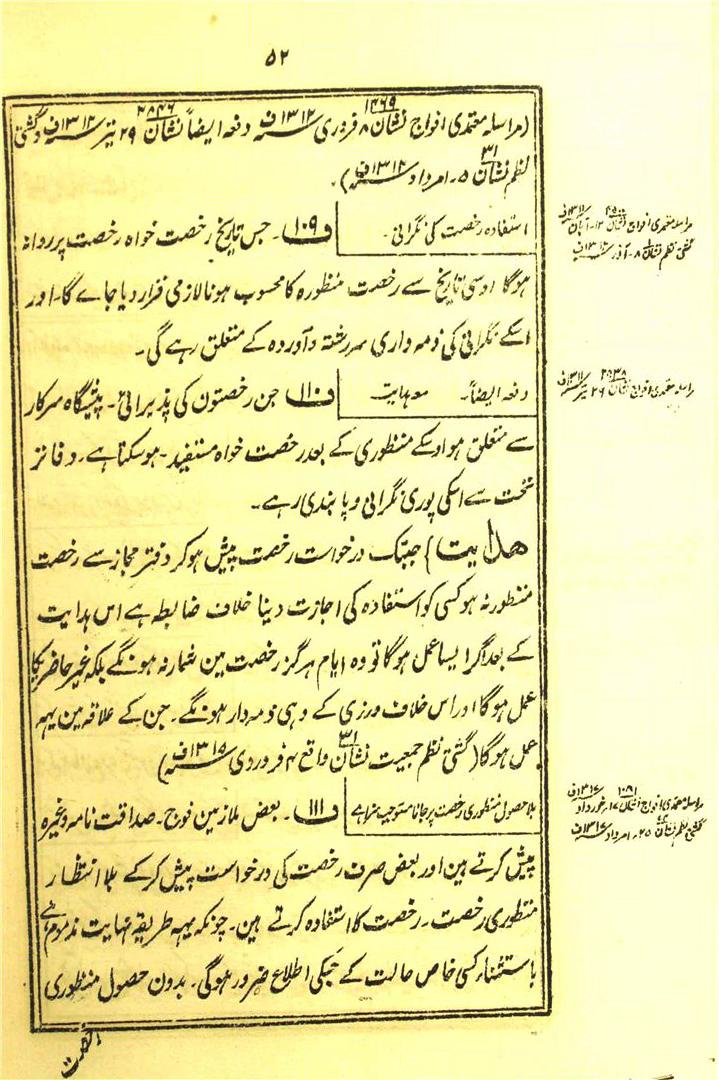 ۵۲
(مراسلہ معتمدی افواج نشان ۱۴۶۹ ۸ فروردی ۱۳۱۲ ف دفعہ ایضاً نشان ۳۸۴۶ ۲۹ تیر ۱۳۱۲ ف و گشتی
نظم نشان ۳۱ ۵۔ امرداد ۱۳۱۲ ف)۔
استفادہ رخصت کی نگرانی۔
ف ۱۰۹۔ جس تاریخ رخصت خواہ رخصت پر روانہ
ہوگا اوسی تاریخ سے رخصت منظورہ کا محسوب ہونا لازمی قرار دیا جاے گا۔ اور
اسکے نگرانی کی ذمہ داری سررشتہ دآوردہ کے متعلق رہے گی۔
دفعہ ایضاً۔ معہ ہدایت
ف ۱۱۰۔ جن رخصتون کی پذیرائی۔ پیشگاہ سرکار
سے متعلق ہو اوسکے منظوری کے بعد رخصت خواہ مستفید۔ ہوسکتا ہے۔ دفاتر
تحت سے اسکی پوری نگرانی و پابندی رہے۔
ھدایت} جبتک درخواست رخصت پیش ہو کر دفتر مجاز سے رخصت
منظور نہ ہو کسی کو استفادہ کی اجازت دینا خلاف ضابطہ ہے اس ہدایت
کے بعد اگر ایسا عمل ہوگا تو وہ ایام ہرگز رخصت مین شمار نہ ہونگے بلکہ غیر حاضریکا
عمل ہوگا اور اس خلاف ورزی کے وہی ذمہ دار ہونگے۔ جن کے علاقہ مین یہہ
عمل ہوگا (گشتی نظم جمعیت نشان ۳۱ واقع ۴ فروردی ۱۳۱۵ ف)
بلا حصول منظوری رخصت پر جانا مستوجب سزا ہے
ف ۱۱۱۔ بعض ملازمین فوج۔ صداقت نامہ وغیرہ
پیش کرتے ہین اور بعض صرف رخصت کی درخواست پیش کر کے بلا انتظار
منظوری رخصت۔ رخصت کا استفادہ کرتے ہین۔ چونکہ یہہ طریقہ نہایت مذموم ہے
باستثناء کسی خاص حالت کے جسکی اطلاع ضرور ہوگی۔ بدون حصول منظوری
رخصت
مراسلہ معتمدی افواج نشان ۱۲۔ آبان
گشتی نظم نشان ۸۔ آذر
مراسلہ معتمدی افواج نشان ۲۵۳۸ ۲۶ تیر
مراسلہ معتمدی افواج نشان ۱۰۸۱ ۱۷۔ خورداد ۱۳۱۶ ف
گشتی نظم نشان ۲۵۔ امرداد ۱۳۱۶ ف